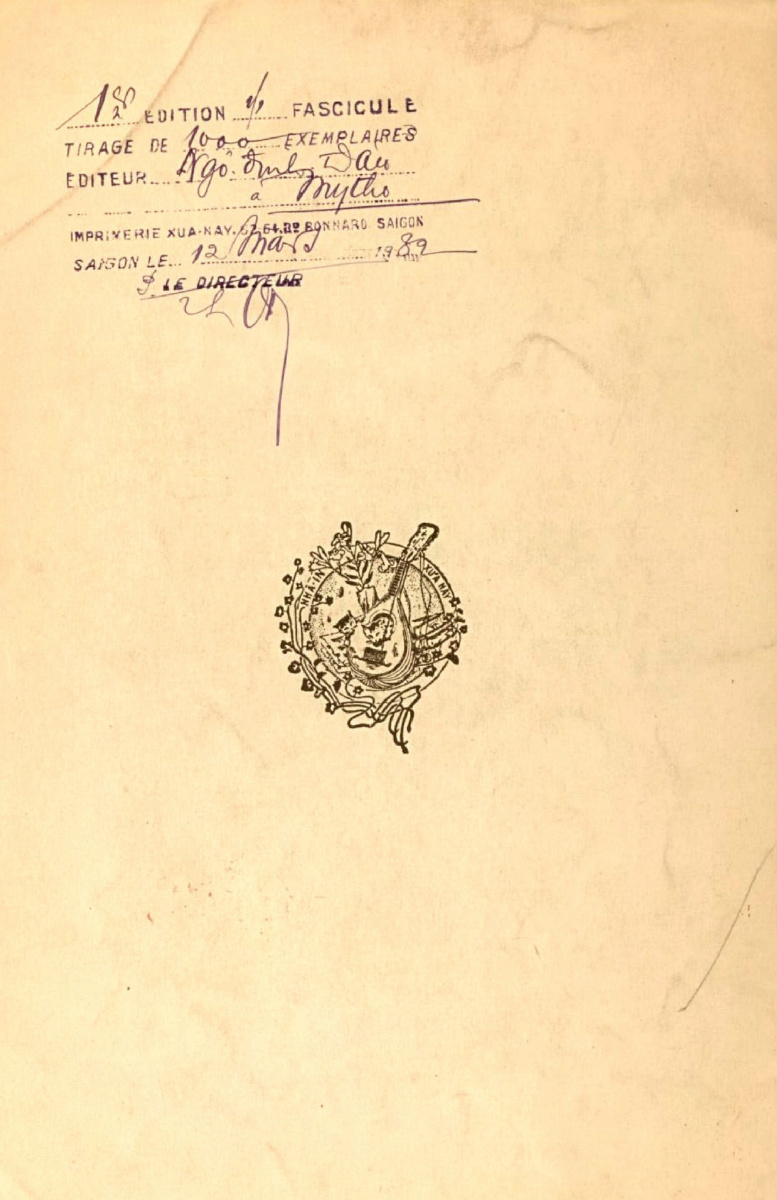 1re EDITION FASCICULE
TIRAGE DE 1000 EXEMPLAIRES
EDITEUR Ngô
à Mytho
IMPRIMERIE XUA-NAY. 62-64, Bd BONNARD SAIGON
SAIGON LE 12 Mars 19
P. LE DIRECTEUR
NHÀ-IN XƯA NAY